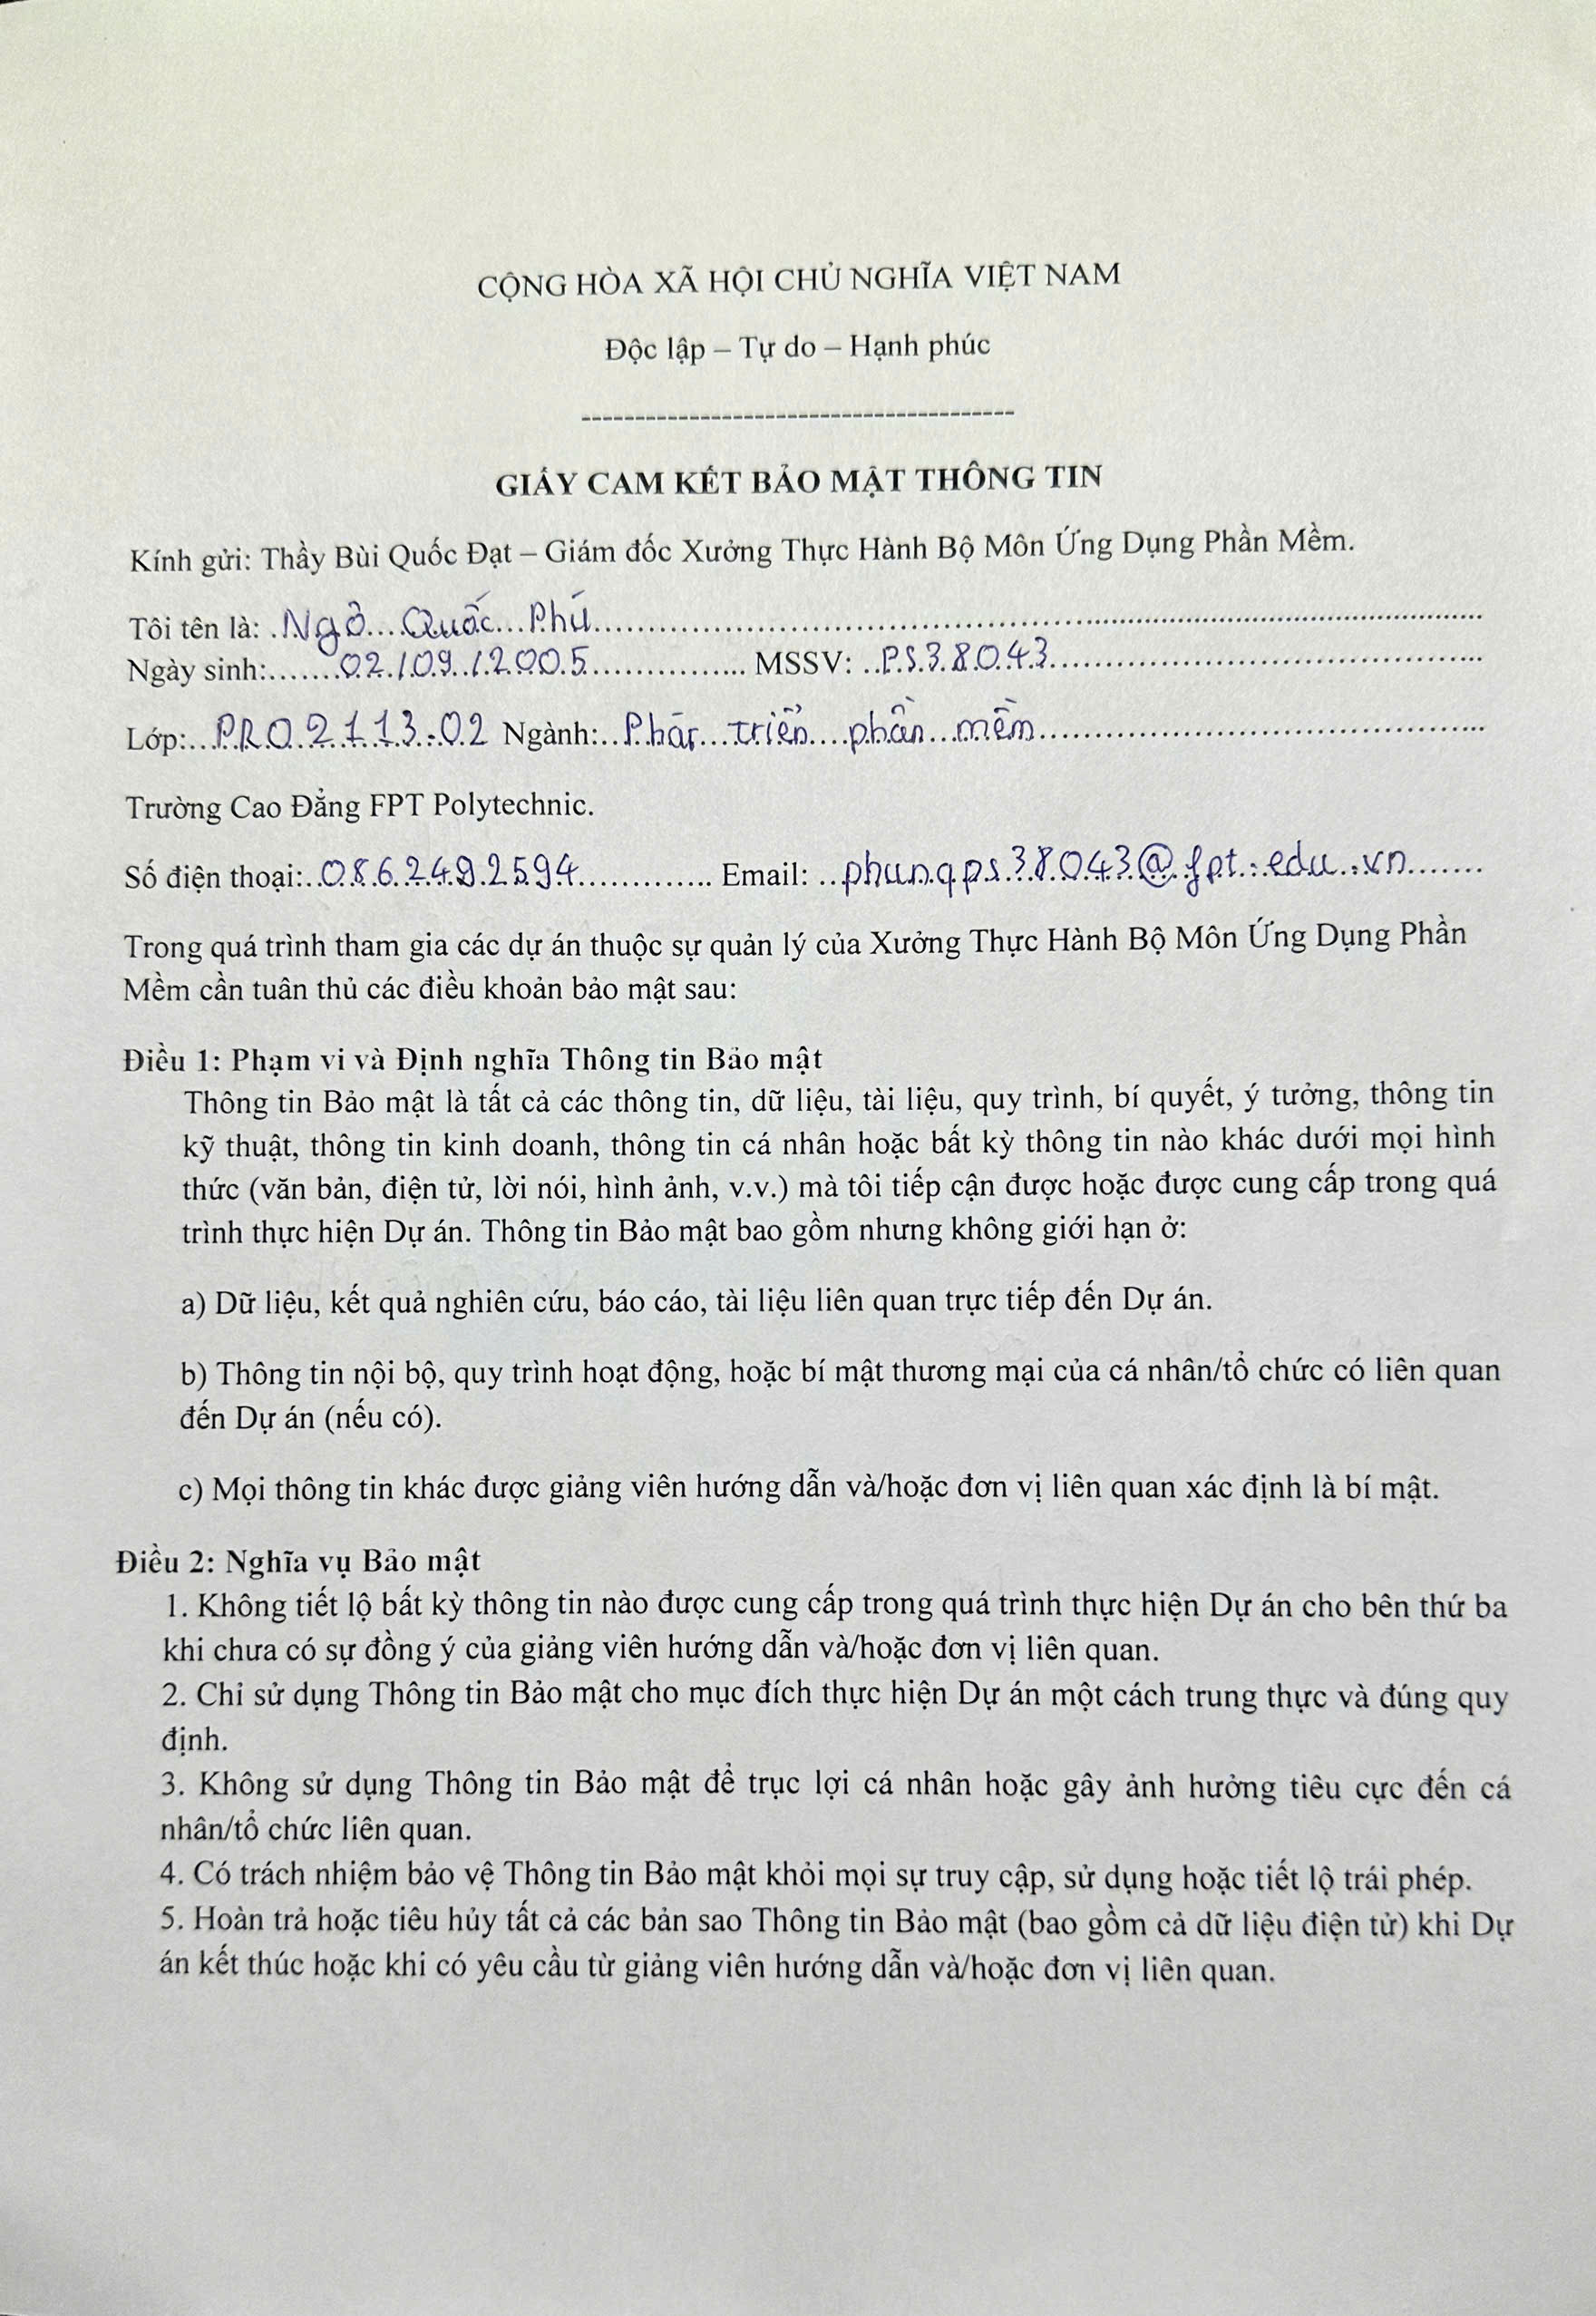 CỘNG HÒA XÃ HỘI CHỦ NGHĨA VIỆT NAM
Độc lập – Tự do – Hạnh phúc
----------------------------------------
GIẤY CAM KẾT BẢO MẬT THÔNG TIN
Kính gửi: Thầy Bùi Quốc Đạt – Giám đốc Xưởng Thực Hành Bộ Môn Ứng Dụng Phần Mềm.
Tôi tên là: Ngô Quốc Phú
Ngày sinh: 02/09/2005 MSSV: PS38043
Lớp: PRO2113.02 Ngành: Phát triển phần mềm
Trường Cao Đẳng FPT Polytechnic.
Số điện thoại: 0862492594 Email: phunqps38043@fpt.edu.vn
Trong quá trình tham gia các dự án thuộc sự quản lý của Xưởng Thực Hành Bộ Môn Ứng Dụng Phần
Mềm cần tuân thủ các điều khoản bảo mật sau:
Điều 1: Phạm vi và Định nghĩa Thông tin Bảo mật
Thông tin Bảo mật là tất cả các thông tin, dữ liệu, tài liệu, quy trình, bí quyết, ý tưởng, thông tin
kỹ thuật, thông tin kinh doanh, thông tin cá nhân hoặc bất kỳ thông tin nào khác dưới mọi hình
thức (văn bản, điện tử, lời nói, hình ảnh, v.v.) mà tôi tiếp cận được hoặc được cung cấp trong quá
trình thực hiện Dự án. Thông tin Bảo mật bao gồm nhưng không giới hạn ở:
a) Dữ liệu, kết quả nghiên cứu, báo cáo, tài liệu liên quan trực tiếp đến Dự án.
b) Thông tin nội bộ, quy trình hoạt động, hoặc bí mật thương mại của cá nhân/tổ chức có liên quan
đến Dự án (nếu có).
c) Mọi thông tin khác được giảng viên hướng dẫn và/hoặc đơn vị liên quan xác định là bí mật.
Điều 2: Nghĩa vụ Bảo mật
1. Không tiết lộ bất kỳ thông tin nào được cung cấp trong quá trình thực hiện Dự án cho bên thứ ba
khi chưa có sự đồng ý của giảng viên hướng dẫn và/hoặc đơn vị liên quan.
2. Chỉ sử dụng Thông tin Bảo mật cho mục đích thực hiện Dự án một cách trung thực và đúng quy
định.
3. Không sử dụng Thông tin Bảo mật để trục lợi cá nhân hoặc gây ảnh hưởng tiêu cực đến cá
nhân/tổ chức liên quan.
4. Có trách nhiệm bảo vệ Thông tin Bảo mật khỏi mọi sự truy cập, sử dụng hoặc tiết lộ trái phép.
5. Hoàn trả hoặc tiêu hủy tất cả các bản sao Thông tin Bảo mật (bao gồm cả dữ liệu điện tử) khi Dự
án kết thúc hoặc khi có yêu cầu từ giảng viên hướng dẫn và/hoặc đơn vị liên quan.